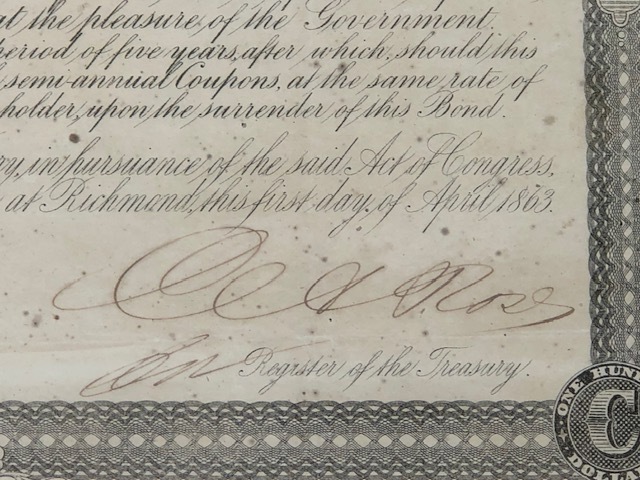 at the pleasure, of the Government.
period of five years, after which, should this
semi-annual Coupons, at the same rate of
holder, upon the surrender of this Bond.
in pursuance of the said Act of Congress,
at Richmond, this first day of April 1863.
Rose
Register of the Treasury.
ONE HUN
C
DOLLA